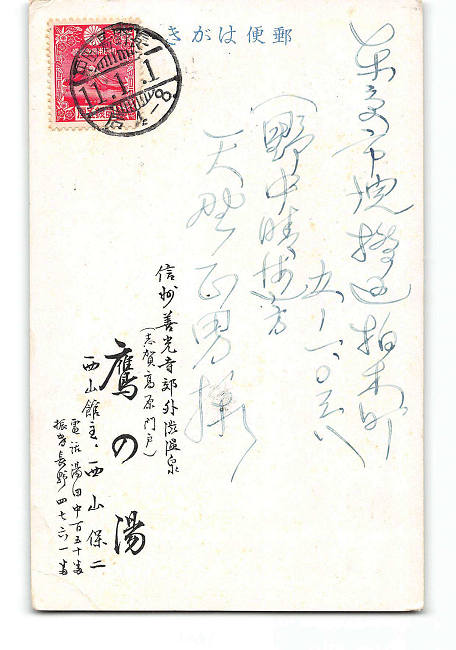 郵便はがき
11.1.1
東京市淀橋区柏木町
五ノ一、〇三八
(野中晴逸方
天野正男様
信州善光寺郊外渋温泉
(志賀高原門戸)
鷹の湯
西山館主、西山保二
電話湯田中百五十番
振替長野四七六一番